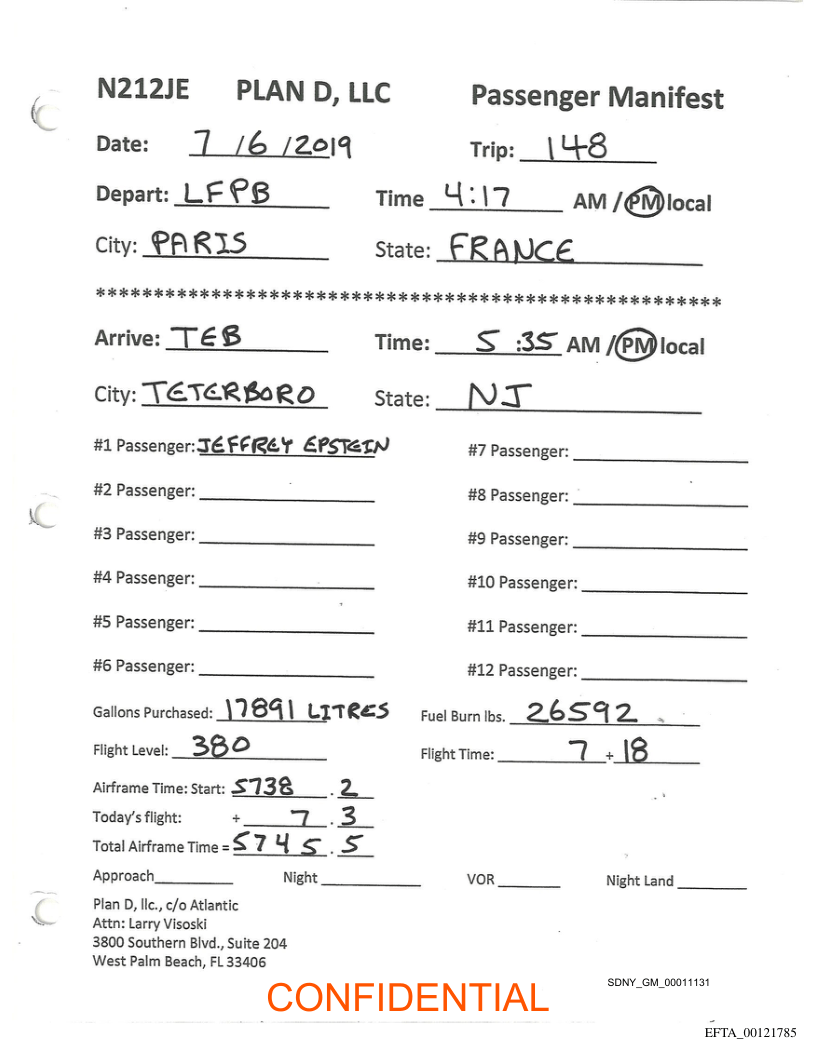 N212JE PLAN D, LLC Passenger Manifest
Date: 7 /6 /2019 Trip: 148
Depart: LFPB Time 4:17 AM / PM local
City: PARIS State: FRANCE
******************************************************
Arrive: TEB Time: 5 :35 AM / PM local
City: TETERBORO State: NJ
#1 Passenger: JEFFREY EPSTEIN #7 Passenger:
#2 Passenger: #8 Passenger:
#3 Passenger: #9 Passenger:
#4 Passenger: #10 Passenger:
#5 Passenger: #11 Passenger:
#6 Passenger: #12 Passenger:
Gallons Purchased: 17891 LITRES Fuel Burn lbs. 26592
Flight Level: 380 Flight Time: 7 + 18
Airframe Time: Start: 5738 . 2
Today's flight: + 7 . 3
Total Airframe Time = 5745 . 5
Approach Night VOR Night Land
Plan D, llc., c/o Atlantic
Attn: Larry Visoski
3800 Southern Blvd., Suite 204
West Palm Beach, FL 33406
SDNY_GM_00011131
CONFIDENTIAL
EFTA_00121785